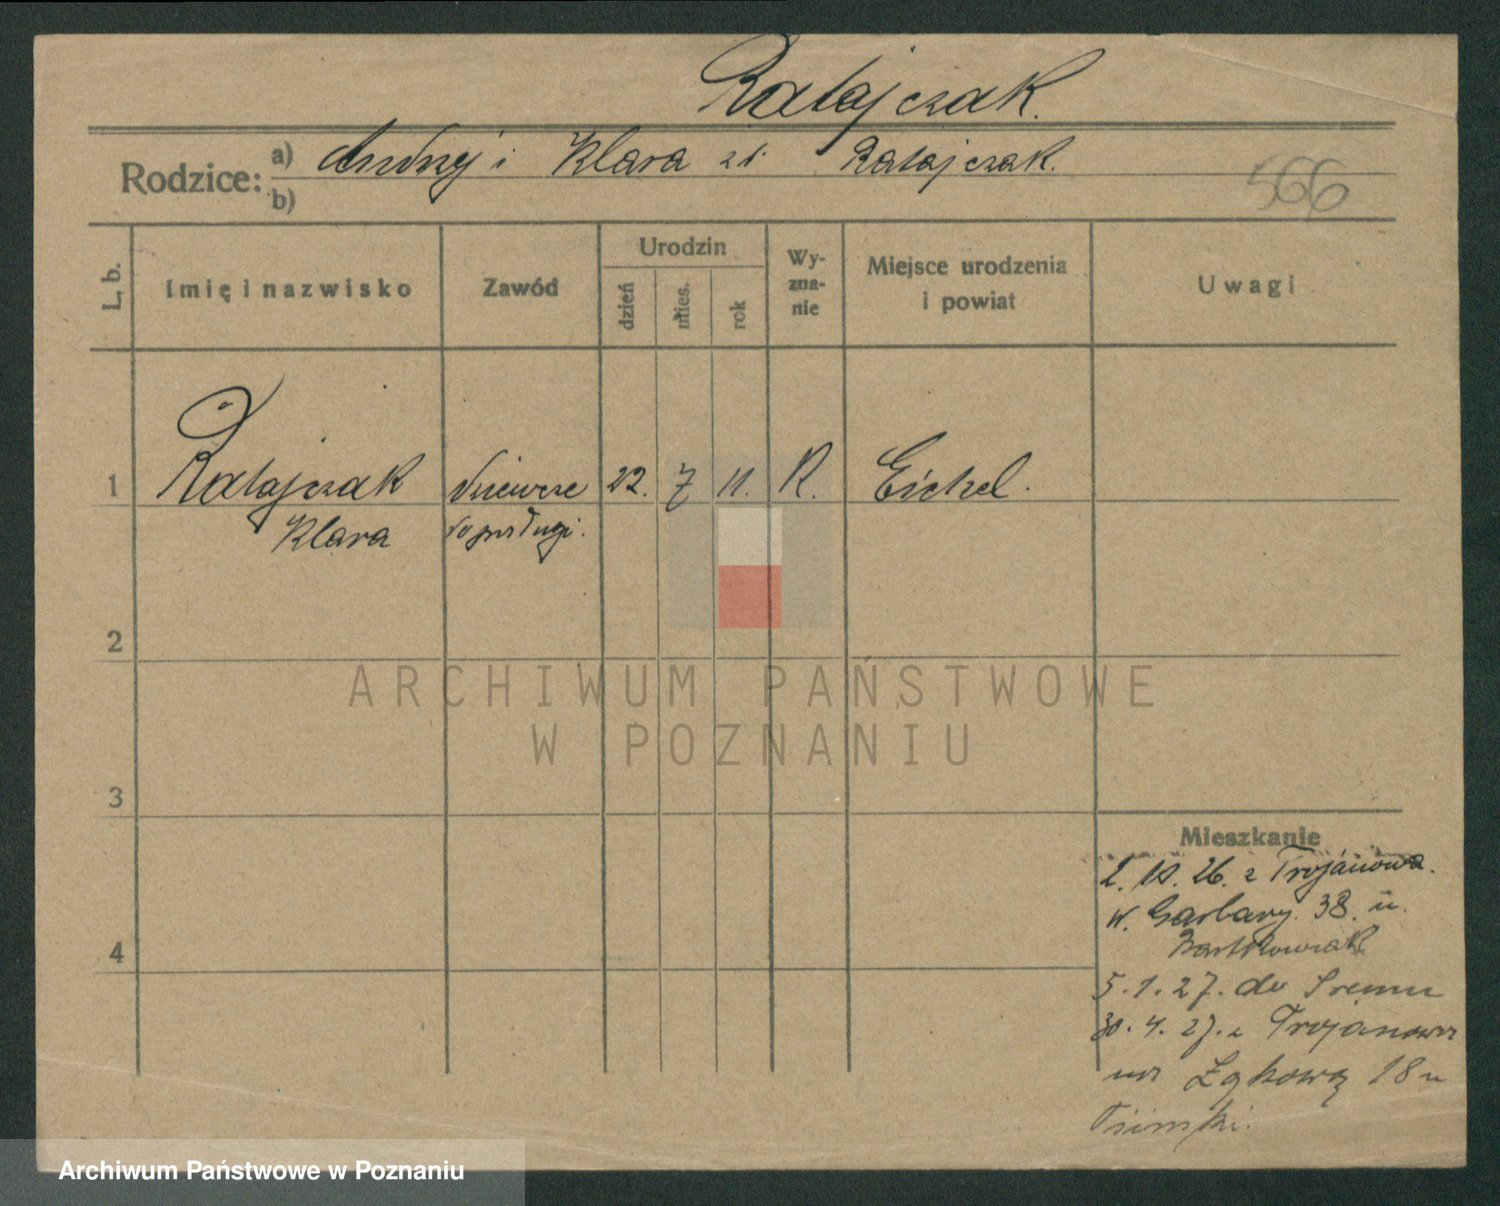 Ratajczak.
Rodzice: a) Andrzej i Klara zd. Ratajczak.
b)
566
L. b. Imię i nazwisko Zawód Urodzin dzień mies. rok Wyznanie Miejsce urodzenia i powiat Uwagi
1 Ratajczak dziewcze 22. 7 11. R. Eichel.
Klara do posługi.
2
3
4
ARCHIWUM PAŃSTWOWE
W POZNANIU
Mieszkanie
2. 10. 26. z Trojanowa.
w. Garbary. 38. u.
Bartkowiak
5. 1. 27. do Śremu
30. 4. 27. z Trojanowa
na Łąkową 18 u
Archiwum Państwowe w Poznaniu